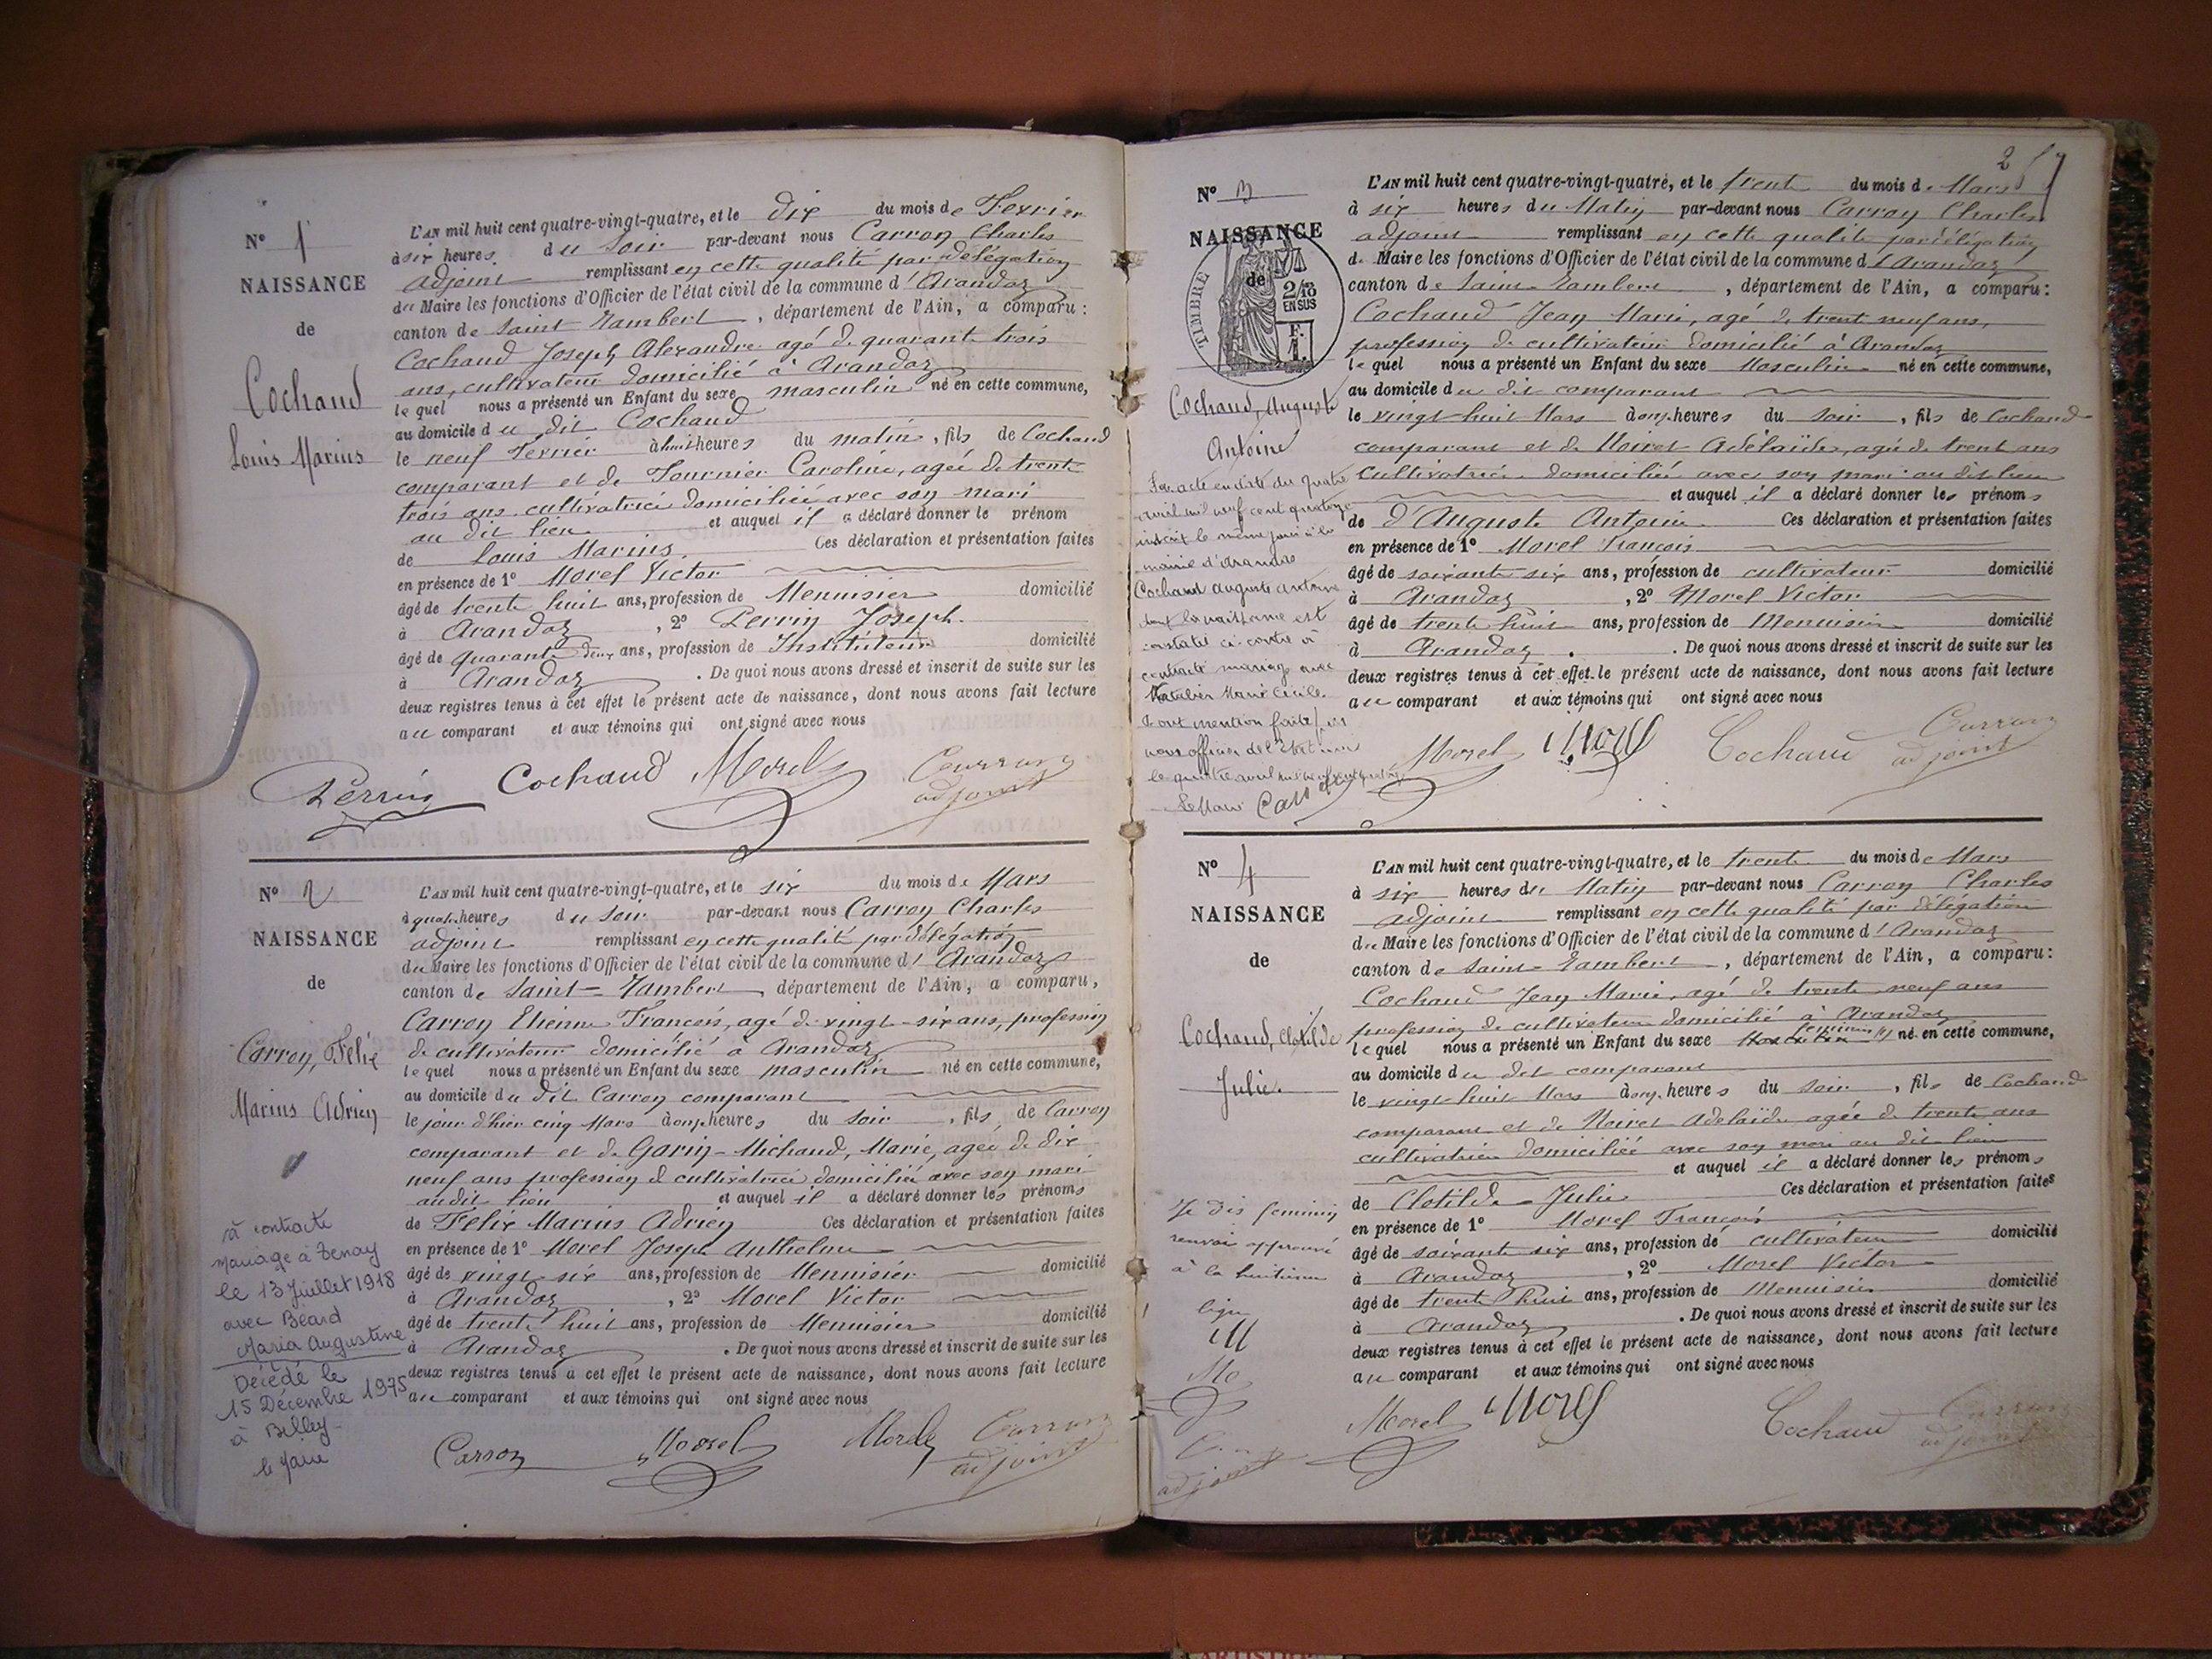 N° 1
NAISSANCE
de
Cochand
Louis Marius
L'AN mil huit cent quatre-vingt-quatre, et le dix du mois de Fevrier
à six heures du Soir par-devant nous Carron Charles
adjoint remplissant en cette qualité par délégation
du Maire les fonctions d'Officier de l'état civil de la commune d'Arandaz
canton de Saint Rambert, département de l'Ain, a comparu :
Cochand Joseph Alexandre agé de quarante trois
ans, cultivateur domicilié à Arandaz
lequel nous a présenté un Enfant du sexe masculin né en cette commune,
au domicile du dit Cochand
le neuf Fevrier à huit heures du matin, fils de Cochand
comparant et de Fournier Caroline, agée de trente
trois ans cultivatrice domiciliée avec son mari
au dit lieu et auquel il a déclaré donner le prénom
de Louis Marius. Ces déclaration et présentation faites
en présence de 1° Morel Victor
âgé de trente huit ans, profession de Menuisier domicilié
à Arandaz, 2° Perrin Joseph.
âgé de quarante deux ans, profession de Instituteur domicilié
à Arandaz. De quoi nous avons dressé et inscrit de suite sur les
deux registres tenus à cet effet le présent acte de naissance, dont nous avons fait lecture
au comparant et aux témoins qui ont signé avec nous
Perrin Cochaud Morel Carron
adjoint
N° 2
NAISSANCE
de
Carron, Félix
Marius Adrien
à contracté
mariage à Tenay
le 13 Juillet 1918
avec Béard
Maria Augustine
Décédé le
15 Décembre 1975
à Belley
le Maire
L'AN mil huit cent quatre-vingt-quatre, et le six du mois de Mars
à quatr. heures du soir par-devant nous Carron Charles
adjoint remplissant en cette qualité par délégation
du Maire les fonctions d'Officier de l'état civil de la commune d'Arandaz
canton de Saint-Rambert, département de l'Ain, a comparu,
Carron Etienne François, agé de vingt-six ans, profession
de cultivateur domicilié à Arandaz
lequel nous a présenté un Enfant du sexe masculin né en cette commune,
au domicile du dit Carron comparant
le jour d'hier cinq Mars à onze heures du soir, fils de Carron
comparant et de Garin-Michaud, Marie, agée de dix
neuf ans profession de cultivatrice domiciliée avec son mari
au dit lieu et auquel il a déclaré donner les prénoms
de Félix Marius Adrien Ces déclaration et présentation faites
en présence de 1° Morel Joseph Anthelme
âgé de vingt six ans, profession de Menuisier domicilié
à Arandaz, 2° Morel Victor
âgé de trente huit ans, profession de Menuisier domicilié
à Arandaz. De quoi nous avons dressé et inscrit de suite sur les
deux registres tenus à cet effet le présent acte de naissance, dont nous avons fait lecture
au comparant et aux témoins qui ont signé avec nous
Carron Morel Morel Carron
adjoint
2
N° 3
NAISSANCE
de
TIMBRE
2/10
EN SUS
F.
1.
Cochand, Auguste
Antoine
Par acte en date du quatre
avril mil neuf cent quatorze
inscrit le même jour à la
mairie d'Arandas
Cochand Auguste Antoine
dont la naissance est
constatée ci-contre a
contracté mariage avec
Marie Cécile.
Dont mention faite par
nous officier de l'état civil
le quatre avril mil neuf cent quatorze
Le Maire
L'AN mil huit cent quatre-vingt-quatre, et le trente du mois de Mars
à six heures du Matin par-devant nous Carron Charles
adjoint remplissant en cette qualité par délégation
du Maire les fonctions d'Officier de l'état civil de la commune d'Arandaz
canton de Saint-Rambert, département de l'Ain, a comparu :
Cochand Jean Marie, agé de trente neuf ans,
profession de cultivateur domicilié à Arandaz
lequel nous a présenté un Enfant du sexe Masculin né en cette commune,
au domicile du dit comparant
le vingt-huit Mars à onz. heures du soir, fils de Cochand
comparant et de Noiret Adélaïde, agée de trente ans
cultivatrice domiciliée avec son mari au dit lieu
et auquel il a déclaré donner les prénoms
de d'Auguste Antoine Ces déclaration et présentation faites
en présence de 1° Morel François
âgé de soixante six ans, profession de cultivateur domicilié
à Arandaz, 2° Morel Victor
âgé de trente huit ans, profession de Menuisier domicilié
à Arandaz. De quoi nous avons dressé et inscrit de suite sur les
deux registres tenus à cet effet le présent acte de naissance, dont nous avons fait lecture
au comparant et aux témoins qui ont signé avec nous
Morel Morel Cochaud Carron
adjoint
N° 4
NAISSANCE
de
Cochand, Clotilde
Julie.
Je dis feminin
renvoi approuvé
à la huitième
ligne
adjoint
L'AN mil huit cent quatre-vingt-quatre, et le trente du mois de Mars
à six heures du Matin par-devant nous Carron Charles
adjoint remplissant en cette qualité par délégation
du Maire les fonctions d'Officier de l'état civil de la commune d'Arandaz
canton de Saint-Rambert, département de l'Ain, a comparu :
Cochand Jean Marie, agé de trente neuf ans
profession de cultivateur domicilié à Arandaz
feminin
lequel nous a présenté un Enfant du sexe Masculin né en cette commune,
au domicile du dit comparant
le vingt-huit Mars à onz. heures du soir, fils de Cochand
comparant et de Noiret Adelaïde agée de trente ans
cultivatrice domiciliée avec son mari au dit lieu
et auquel il a déclaré donner les prénoms
de Clotilde Julie Ces déclaration et présentation faites
en présence de 1° Morel François
âgé de soixante six ans, profession de cultivateur domicilié
à Arandaz, 2° Morel Victor
âgé de trente huit ans, profession de Menuisier domicilié
à Arandaz. De quoi nous avons dressé et inscrit de suite sur les
deux registres tenus à cet effet le présent acte de naissance, dont nous avons fait lecture
au comparant et aux témoins qui ont signé avec nous
Morel Morel Cochaud Carron
adjoint